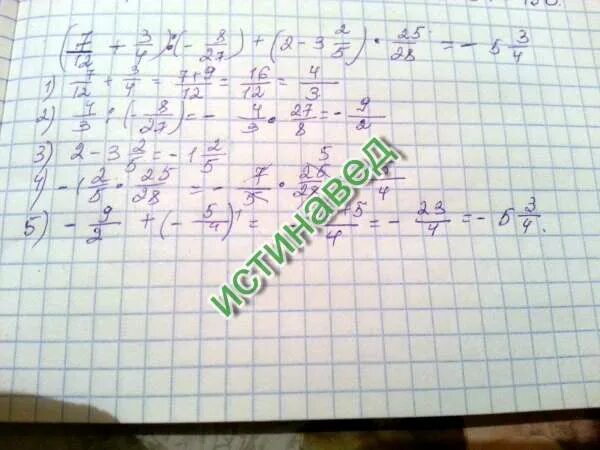 (7/12 + 3/4) : (- 8/27) + (2 - 3 2/5) · 25/28 = - 5 3/4
1) 7/12 + 3/4 = 7+9/12 = 16/12 = 4/3
2) 4/3 : (- 8/27) = - 4/3 · 27/8 = - 9/2
3) 2 - 3 2/5 = - 1 2/5
4) - 1 2/5 · 25/28 = - 7/5 · 25/28 5/4
5) - 9/2 + (- 5/4) = +5/4 = - 23/4 = - 5 3/4.
ИСТИНАВЕД